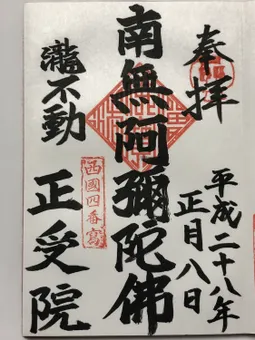 奉拝
平成二十八年
正月八日
南無阿彌陀佛
瀧不動
正受院
西國四番寫